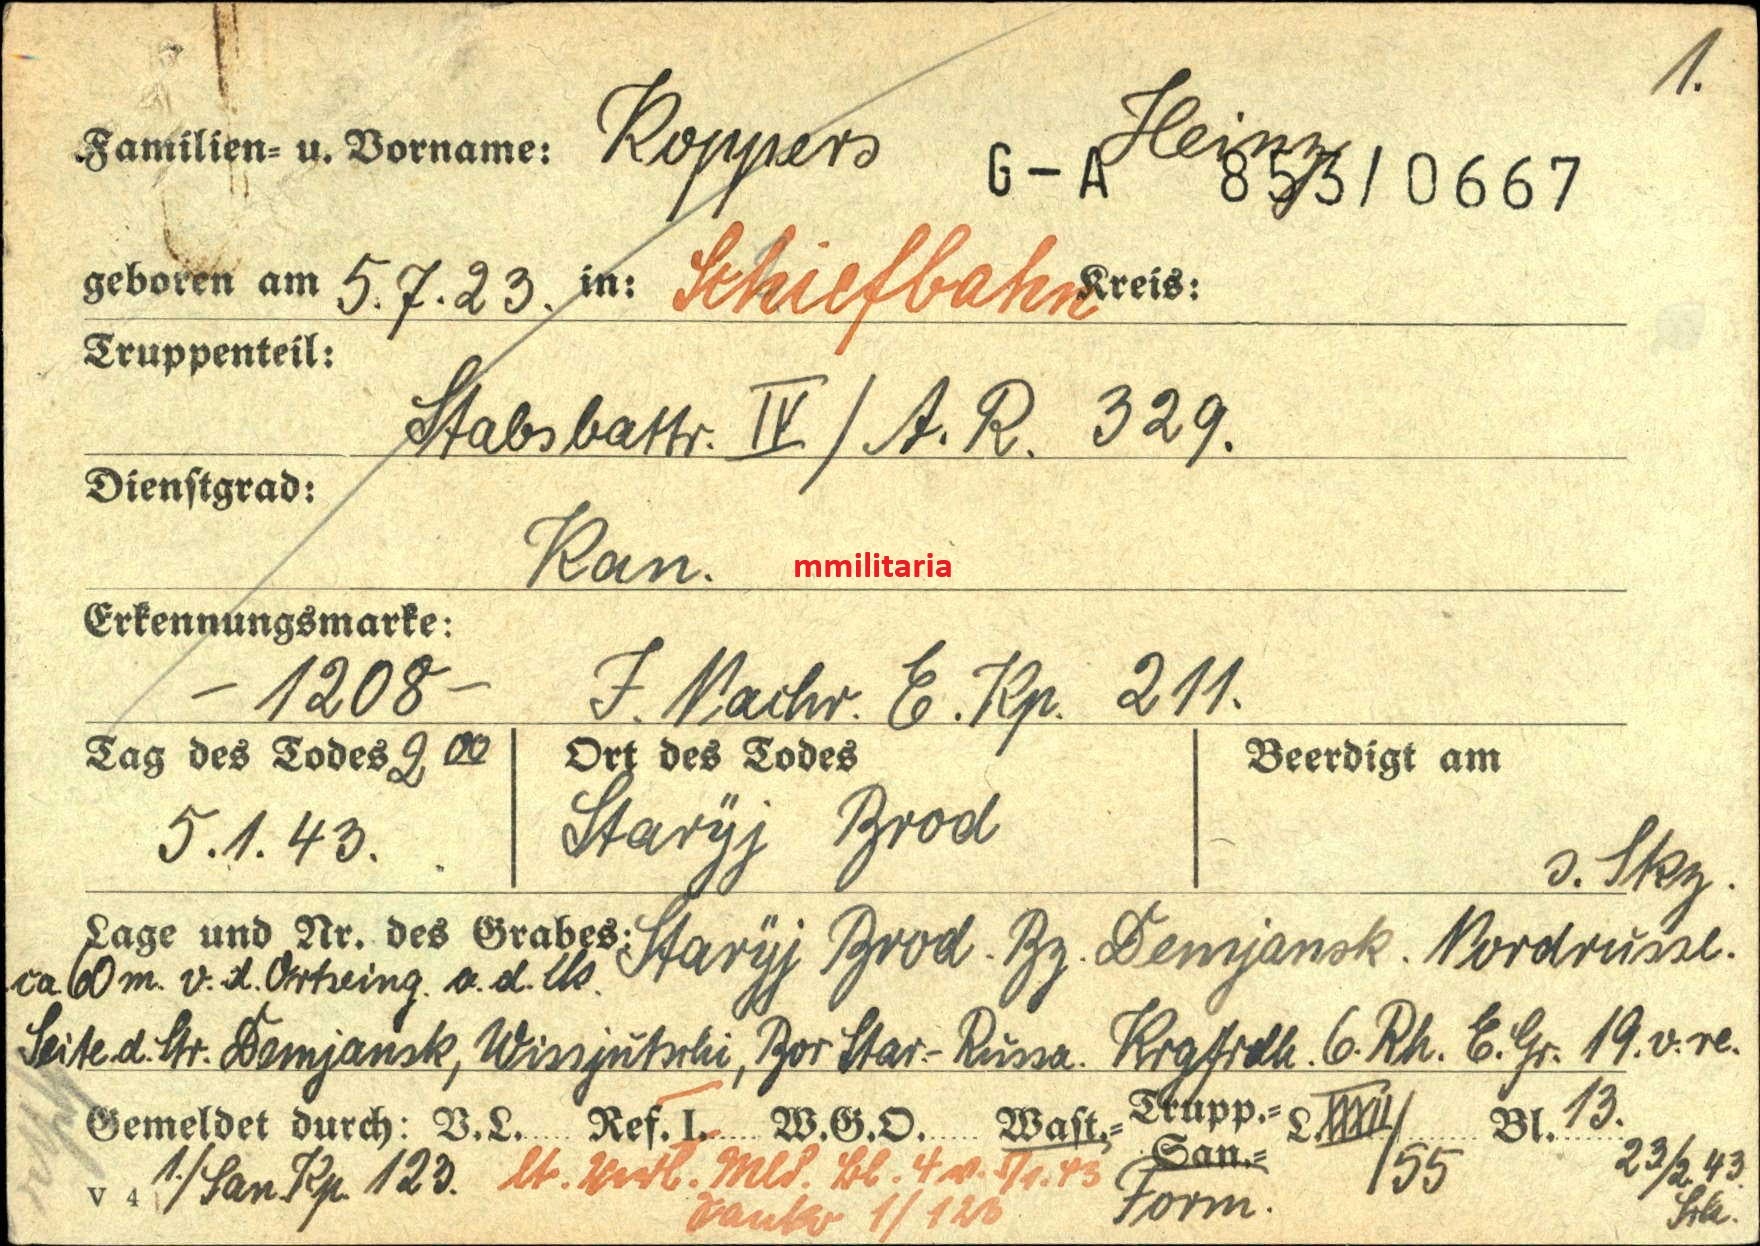 1.
Familien- u. Vorname: Koppers Heinz
G-A 853/0667
geboren am 5.7.23. in: Schiefbahn Kreis:
Truppenteil:
Stabsbattr. IV / A. R. 329.
Dienstgrad:
Kan.
mmilitaria
Erkennungsmarke:
- 1208 - J. Nachr. E. Kp. 211.
Tag des Todes 2 00 Ort des Todes Beerdigt am
5.1.43. Staryj Brod
s. Skz.
Lage und Nr. des Grabes: Staryj Brod. Bz. Demjansk. Nordrussl.
ca 60 m. v. d. Ortseing. a. d. lks.
Seite d. Str. Demjansk, Wissjutschi, Bor Star.- Russa. Krgfrdh. 6. Rh. E. Gr. 19. v. re.
Gemeldet durch: V.L. Ref. I. W.G.O. Wast.- Trupp.- L. XXXII/55 Bl. 13.
San.-
Form.
1./San. Kp. 123.
lt. Verl. Mld. Bl. 4 v. 5/1.43
1/123
23/2.43.